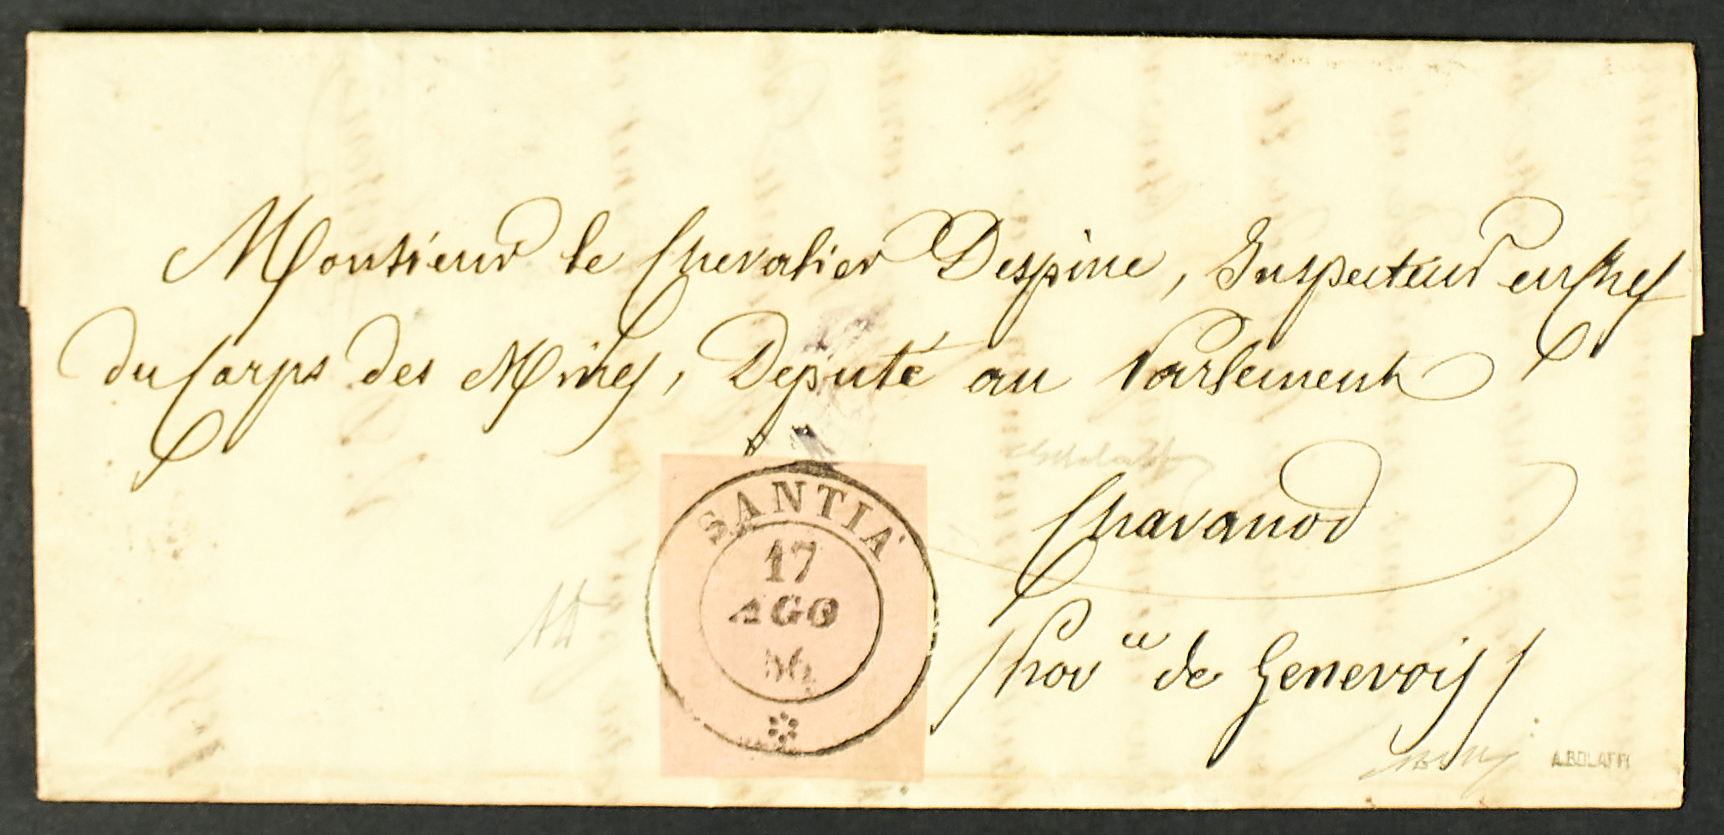 Monsieur le Chevalier Despine, Inspecteur en chef
du Corps des Mines, Députe au Parlement
Chavanod
(Prov ce de Genevois)
SANTIA'
17
AGO
56
A.BOLAFFI